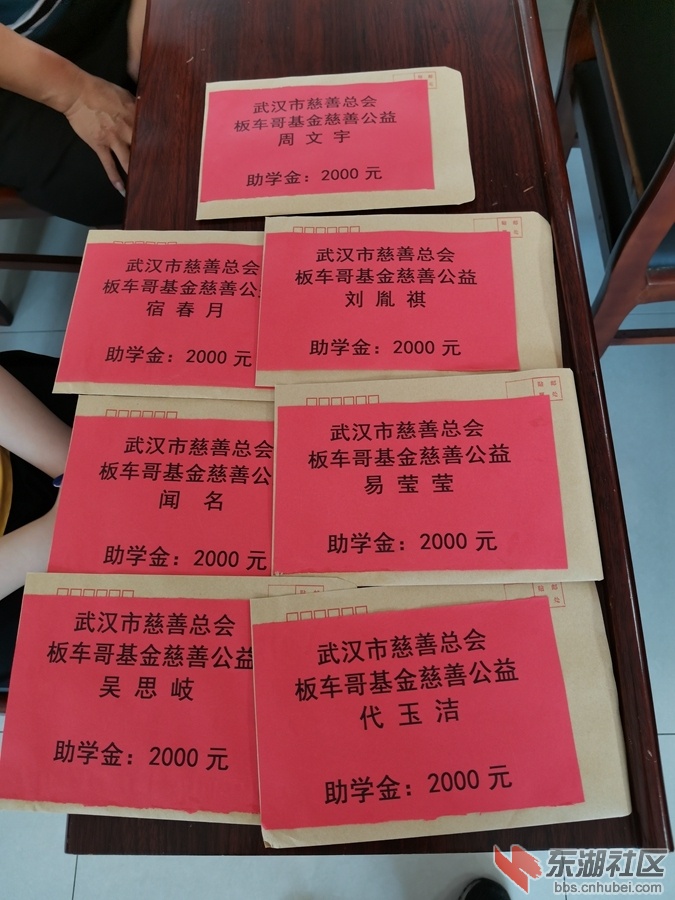 武汉市慈善总会
板车哥基金慈善公益
周文宇
助学金：2000元
武汉市慈善总会
板车哥基金慈善公
宿春月
助学金：2000元
武汉市慈善总会
板车哥基金慈善公益
刘胤祺
助学金：2000元
武汉市慈善总会
板车哥基金慈善公
闻名
助学金：2000元
武汉市慈善总会
板车哥基金慈善公益
易莹莹
助学金：2000元
武汉市慈善总会
板车哥基金慈善公益
吴思岐
助学金：2000元
武汉市慈善总会
板车哥基金慈善公益
代玉洁
助学金：2000元
东湖社区
bbs.cnhubei.com